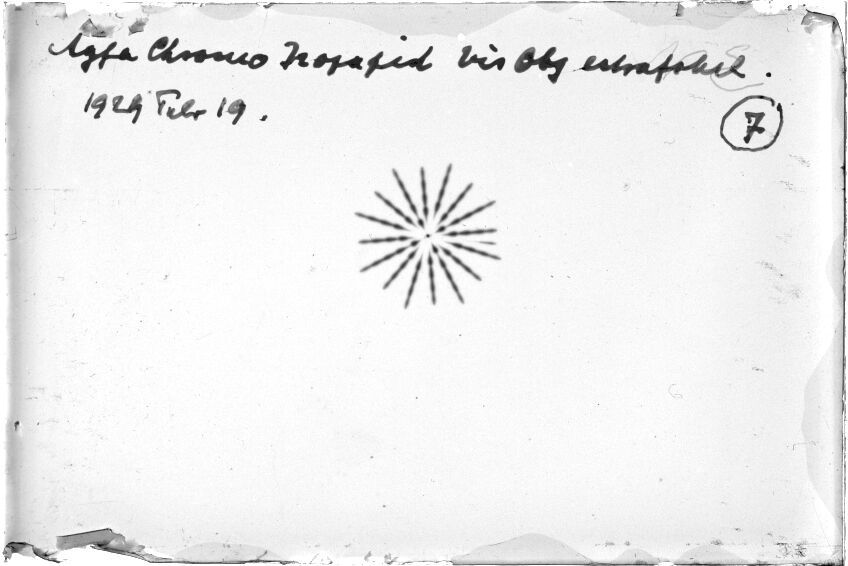 Agfa Chromo Isorapid Vis Obj extrafokal.
1929 Febr 19.
7